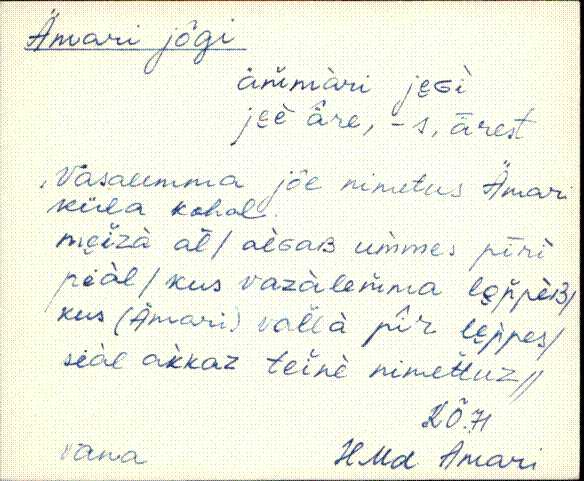 Ämari jõgi
äm̆màri jeɢì
jeè âre, -s, ärest
Vasalemma jõe nimetus Ämari
küla kohal.
meĭzà al/ alɢaʙ ummes pīri
piàl/ kus vazàlem̆ma lep̆pèʙ/
kus (Ämari) val̆là pîr leppes/
siàl akkaz teĭnè nimet̆tuz//
KÕ.H
vana HMd Ämari